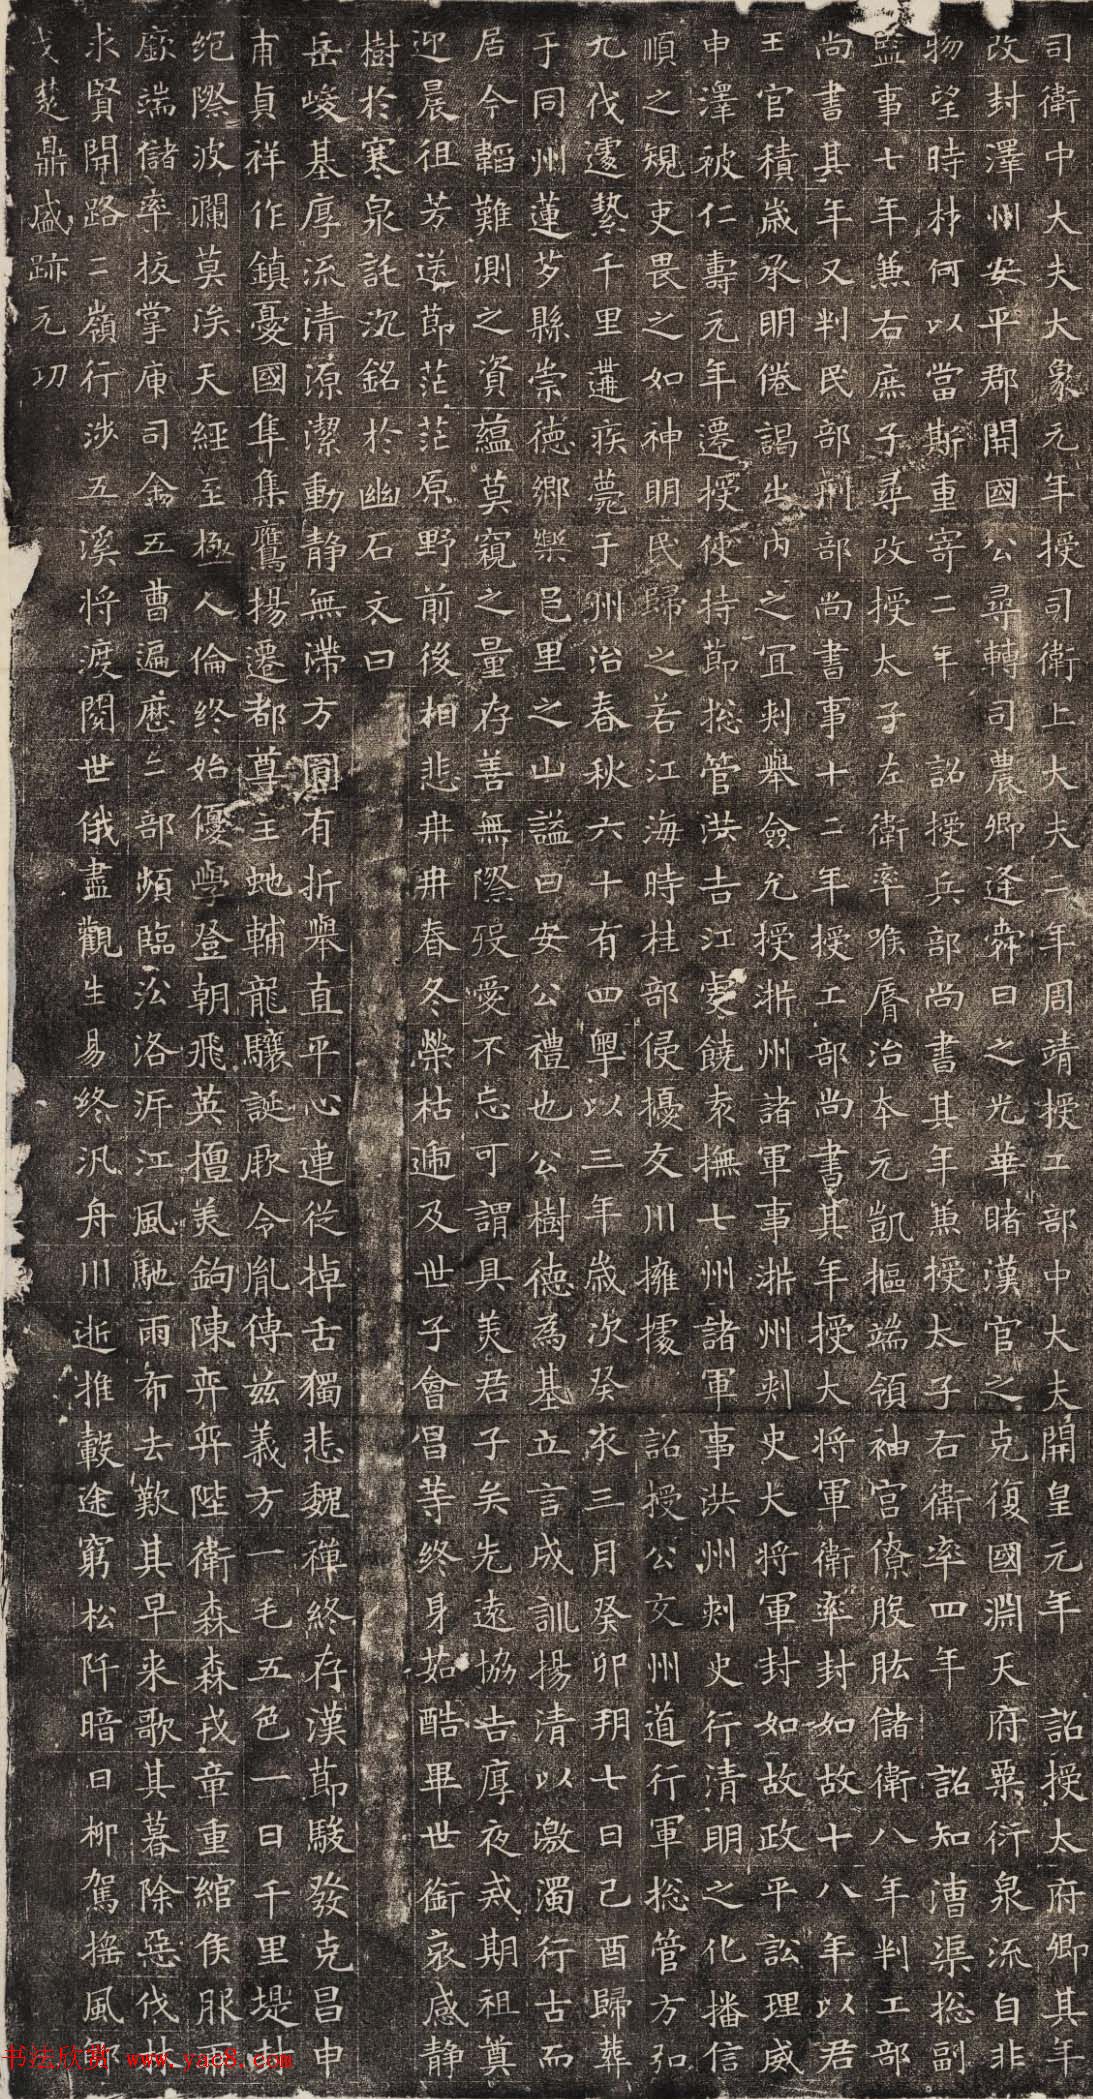 司衛中大夫大象元年授司衛上大夫二年周靖授工部中大夫開皇元年 詔授太府卿其年
改封澤州安平郡開國公尋轉司農卿逢舜日之光華睹漢官之克復國淵天府粟衍泉流自非
物望時材何以當斯重寄二年 詔授兵部尚書其年兼授太子右衛率四年 詔知漕渠総副
監事七年兼右庶子尋改授太子左衛率喉脣治本元凱樞端領袖宮僚股肱儲衛八年判工部
尚書其年又判民部刑部尚書事十二年授工部尚書其年授大將軍衛率封如故十八年以君
王官積歲承明倦謁出內之宜判舉僉允授淅州諸軍事淅州刺史大將軍封如故政平訟理威
申澤被仁壽元年遷授使持節総管洪吉江虔饒袁撫七州諸軍事洪州刺史行清明之化播信
順之規吏畏之如神明民歸之若江海時桂部侵擾交川擁據 詔授公交州道行軍総管方弘
九伐遽縶千里遘疾薨于州治春秋六十有四粵以三年歲次癸亥三月癸卯朔七日己酉歸葬
于同州蓮芍縣崇德鄉樂邑里之山謚曰安公禮也公樹德為基立言成訓揚清以激濁行古而
居今韜難測之資蘊莫窺之量存善無際歿愛不忘可謂具美君子矣先遠協吉厚夜戒期祖奠
迎晨徂芳送節茫茫原野前後相悲冉冉春冬榮枯遞及世子會昌等終身茹酷畢世銜哀感靜
樹於寒泉託沉銘於幽石文曰
岳峻基厚流清源潔動靜無滯方圓有折舉直平心連從掉舌獨悲魏禪終存漢節駿發克昌申
甫貞祥作鎮憂國隼集鷹揚遷都尊主虵輔龍驤誕厥令胤傳茲義方一毛五色一日千里堤封
絕際波瀾莫涘天經至極人倫終始優學登朝飛英擅美鉤陳弈弈陛衛森森戎章重綰侯服
嶔端儲率扙掌庫司金五曹遍歷二部頻臨訟洛泝江風馳雨布去歎其早來歌其暮除惡伐林
求賢開路二嶺行涉五溪將渡閱世俄盡觀生易終汎舟川逝推轂途窮松阡暗日柳駕搖風
鼎盛跡元功
书法欣赏 www.yac8.com